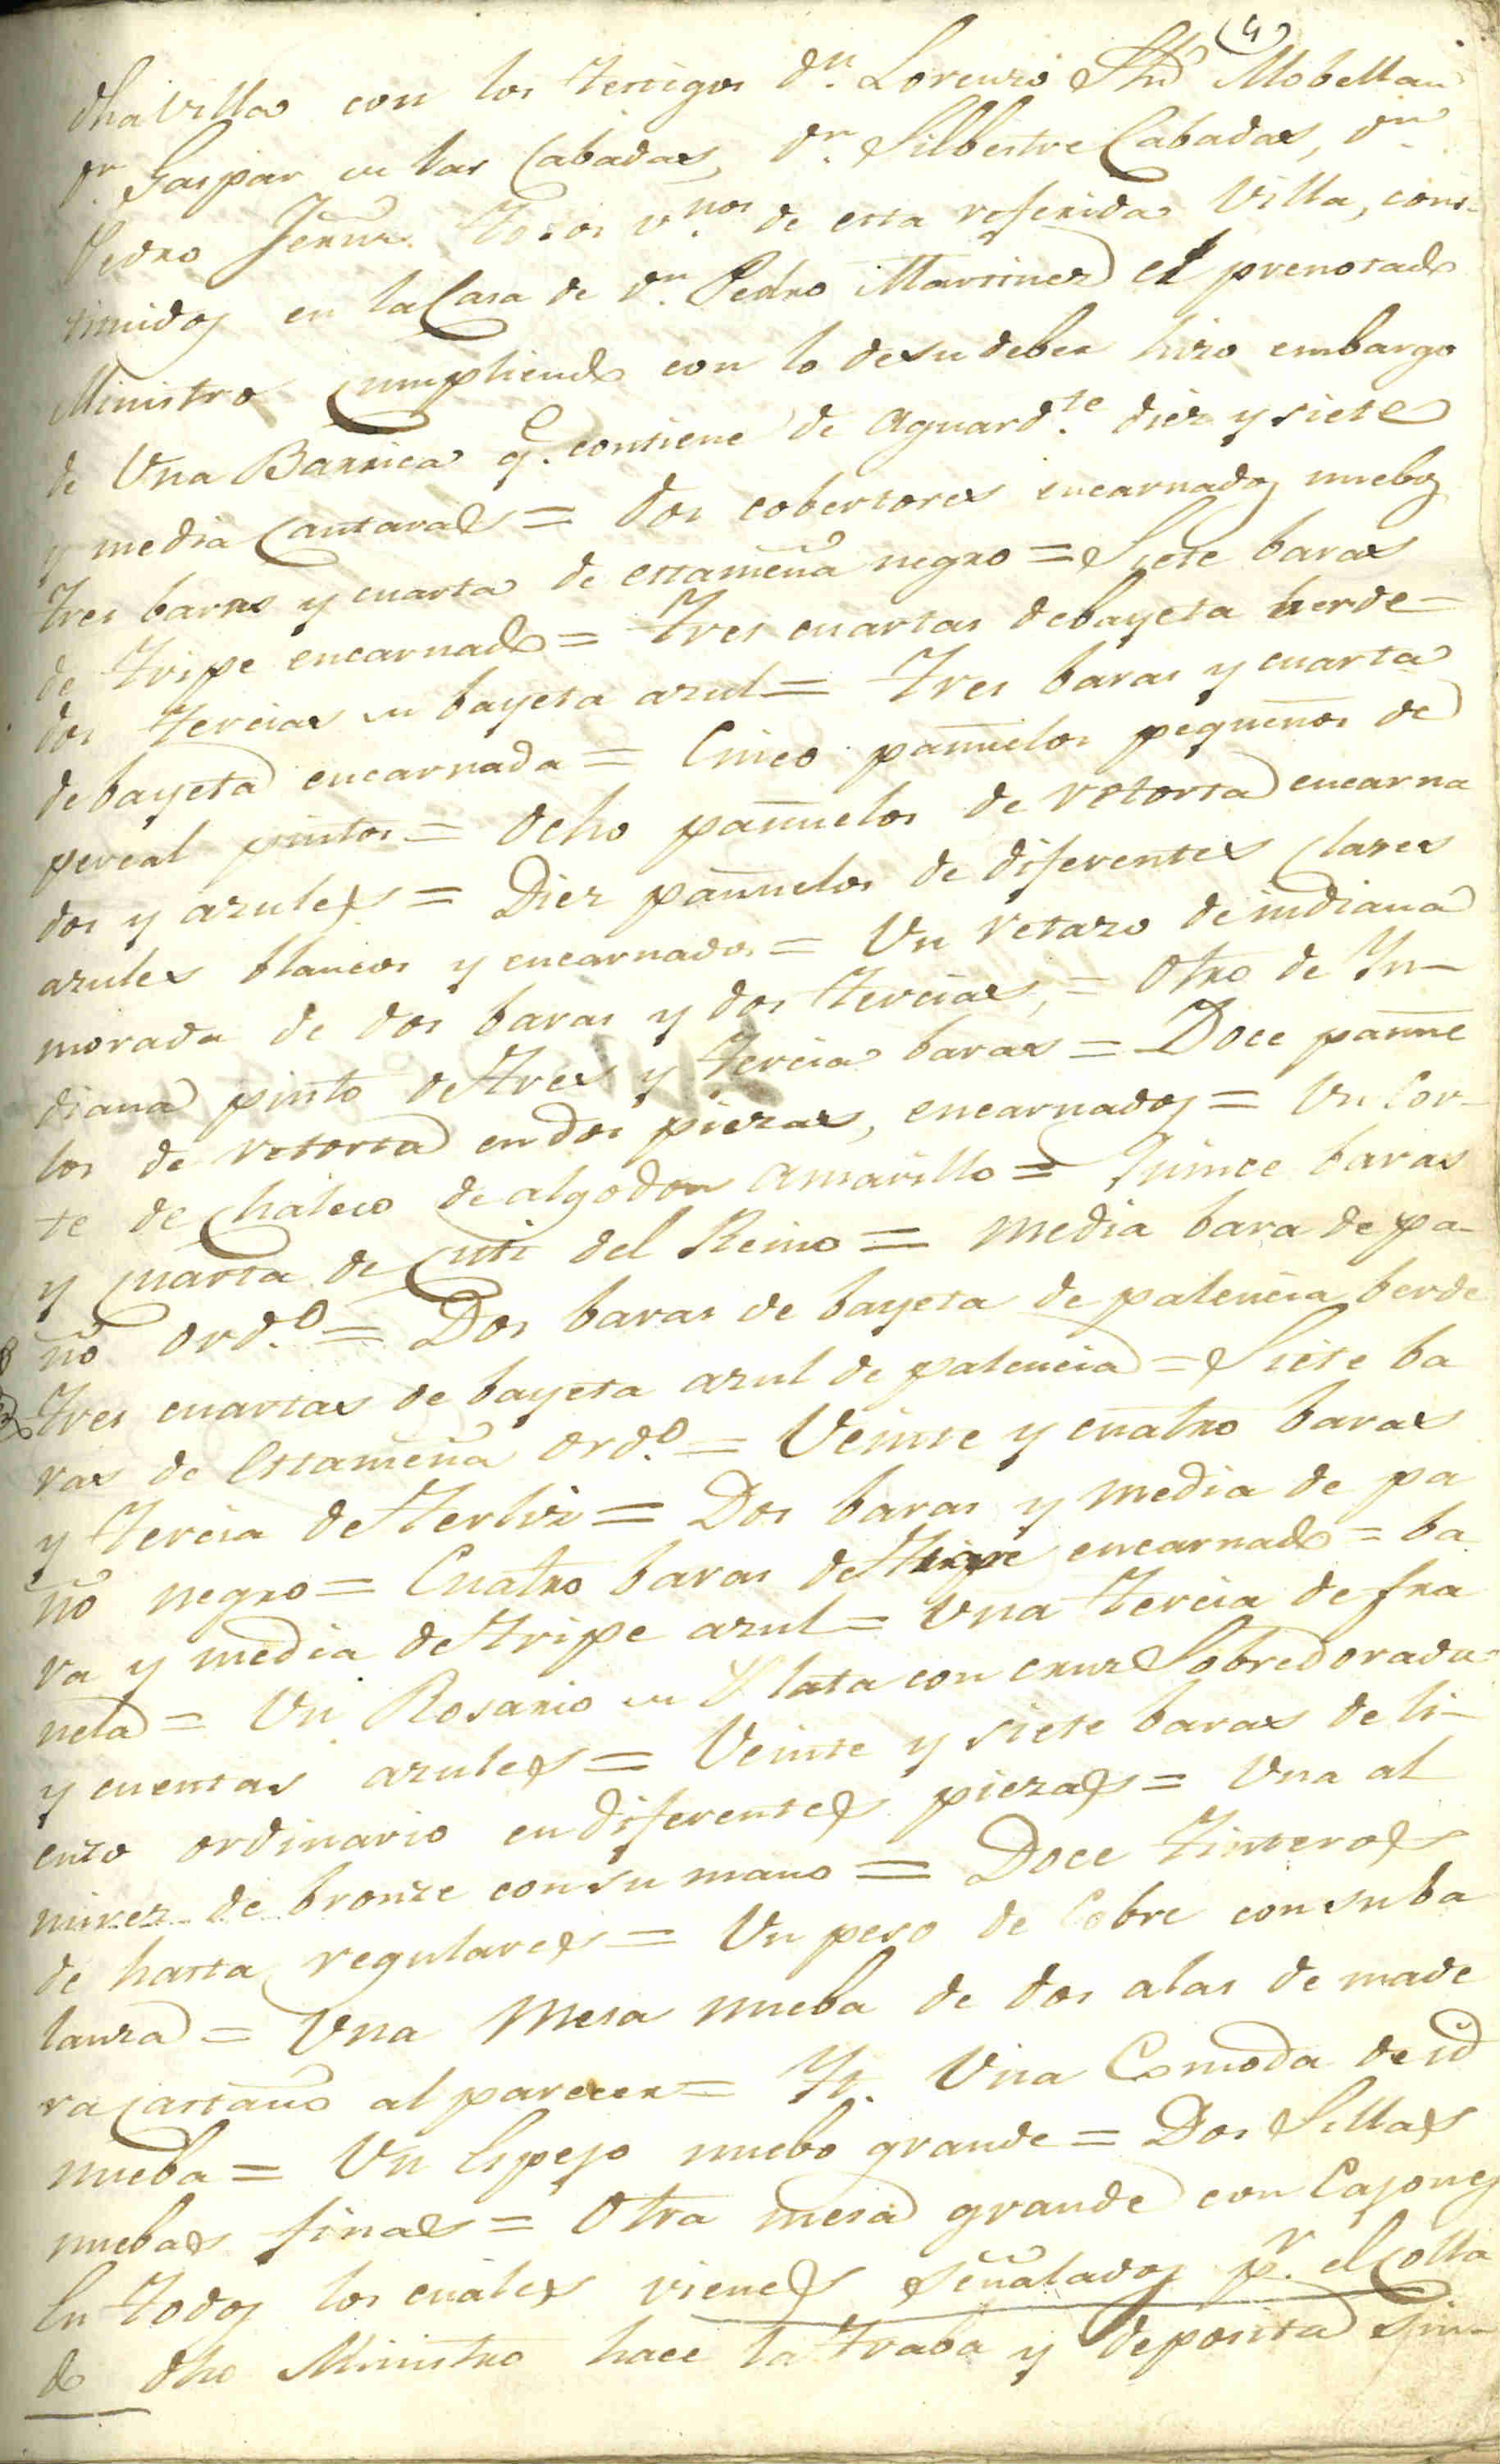 (4)
dha Villa con los testigos Dn. Lorenzo Mobellan
Dn. Gaspar en las Cabadas, Dn. Silbestre Cabadas, Dn.
Pedro todos v.nos de esta referida Villa, cons-
tituidos en la Casa de Dn. Pedro Martinez el prenotado
Ministro Cumpliendo con lo de su deber hizo embargo
de Una Barrica q.e contiene de Aguard.te diez y siete
y media Cantaras = Dos cobertores encarnados nuebos
tres baras y cuarta de estameña negro = Siete baras
de tripe encarnado = tres cuartas de bayeta berde =
dos tercias en bayeta azul = tres baras y cuarta
de bayeta encarnada = Cinco pañuelos pequeños de
percal pintos = Ocho pañuelos de retorta encarna
dos y azules = Diez pañuelos de diferentes clases
azules blancos y encarnados = Un retazo de indiana
morada de dos baras y dos tercias, = Otro de Yn-
diana pinto de tres y tercia baras = Doce pañue
los de retorta en dos piezas, encarnados = Un Cor-
te de chaleco de algodon amarillo = Quince baras
y cuarta de Cuti del Reino = media bara de pa-
ño ord.o = Dos baras de bayeta de palencia berde
tres cuartas de bayeta azul de palencia = Siete ba
ras de Estameña ord.o = Veinte y cuatro baras
y tercia de terliz = Dos baras y media de pa
ño negro = Cuatro baras de tripe encarnado = ba
ra y media de tripe azul = Una tercia de fra
nela = Un Rosario en Plata con cruz Sobredorada
y cuentas azules = Veinte y siete baras de li-
enzo ordinario en diferentes piezas = Una al
mirez de bronze con su mano = Doce tinteros
de hasta regulares = Un peso de Cobre con su ba
lanza = Una Mesa nueba de dos alas de made
ra castaño al parecer = Yt. Una Comoda de id
nueba = Un Espejo nuebo grande = Dos Sillas
nuebas finas = Otra mesa grande con Cajones
En todos los cuales vienes señalados p.r el Colla
do dho Ministro hace la traba y deposita sin-